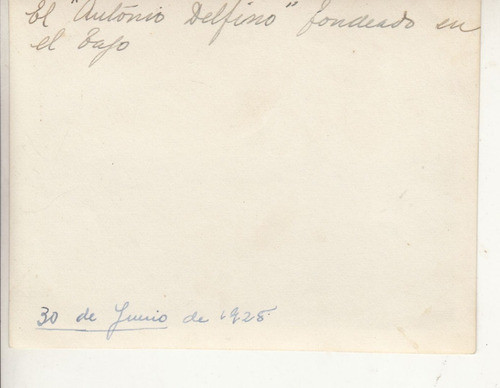 El "António Delfino" fondeado en
el Tajo
30 de Junio de 1925.